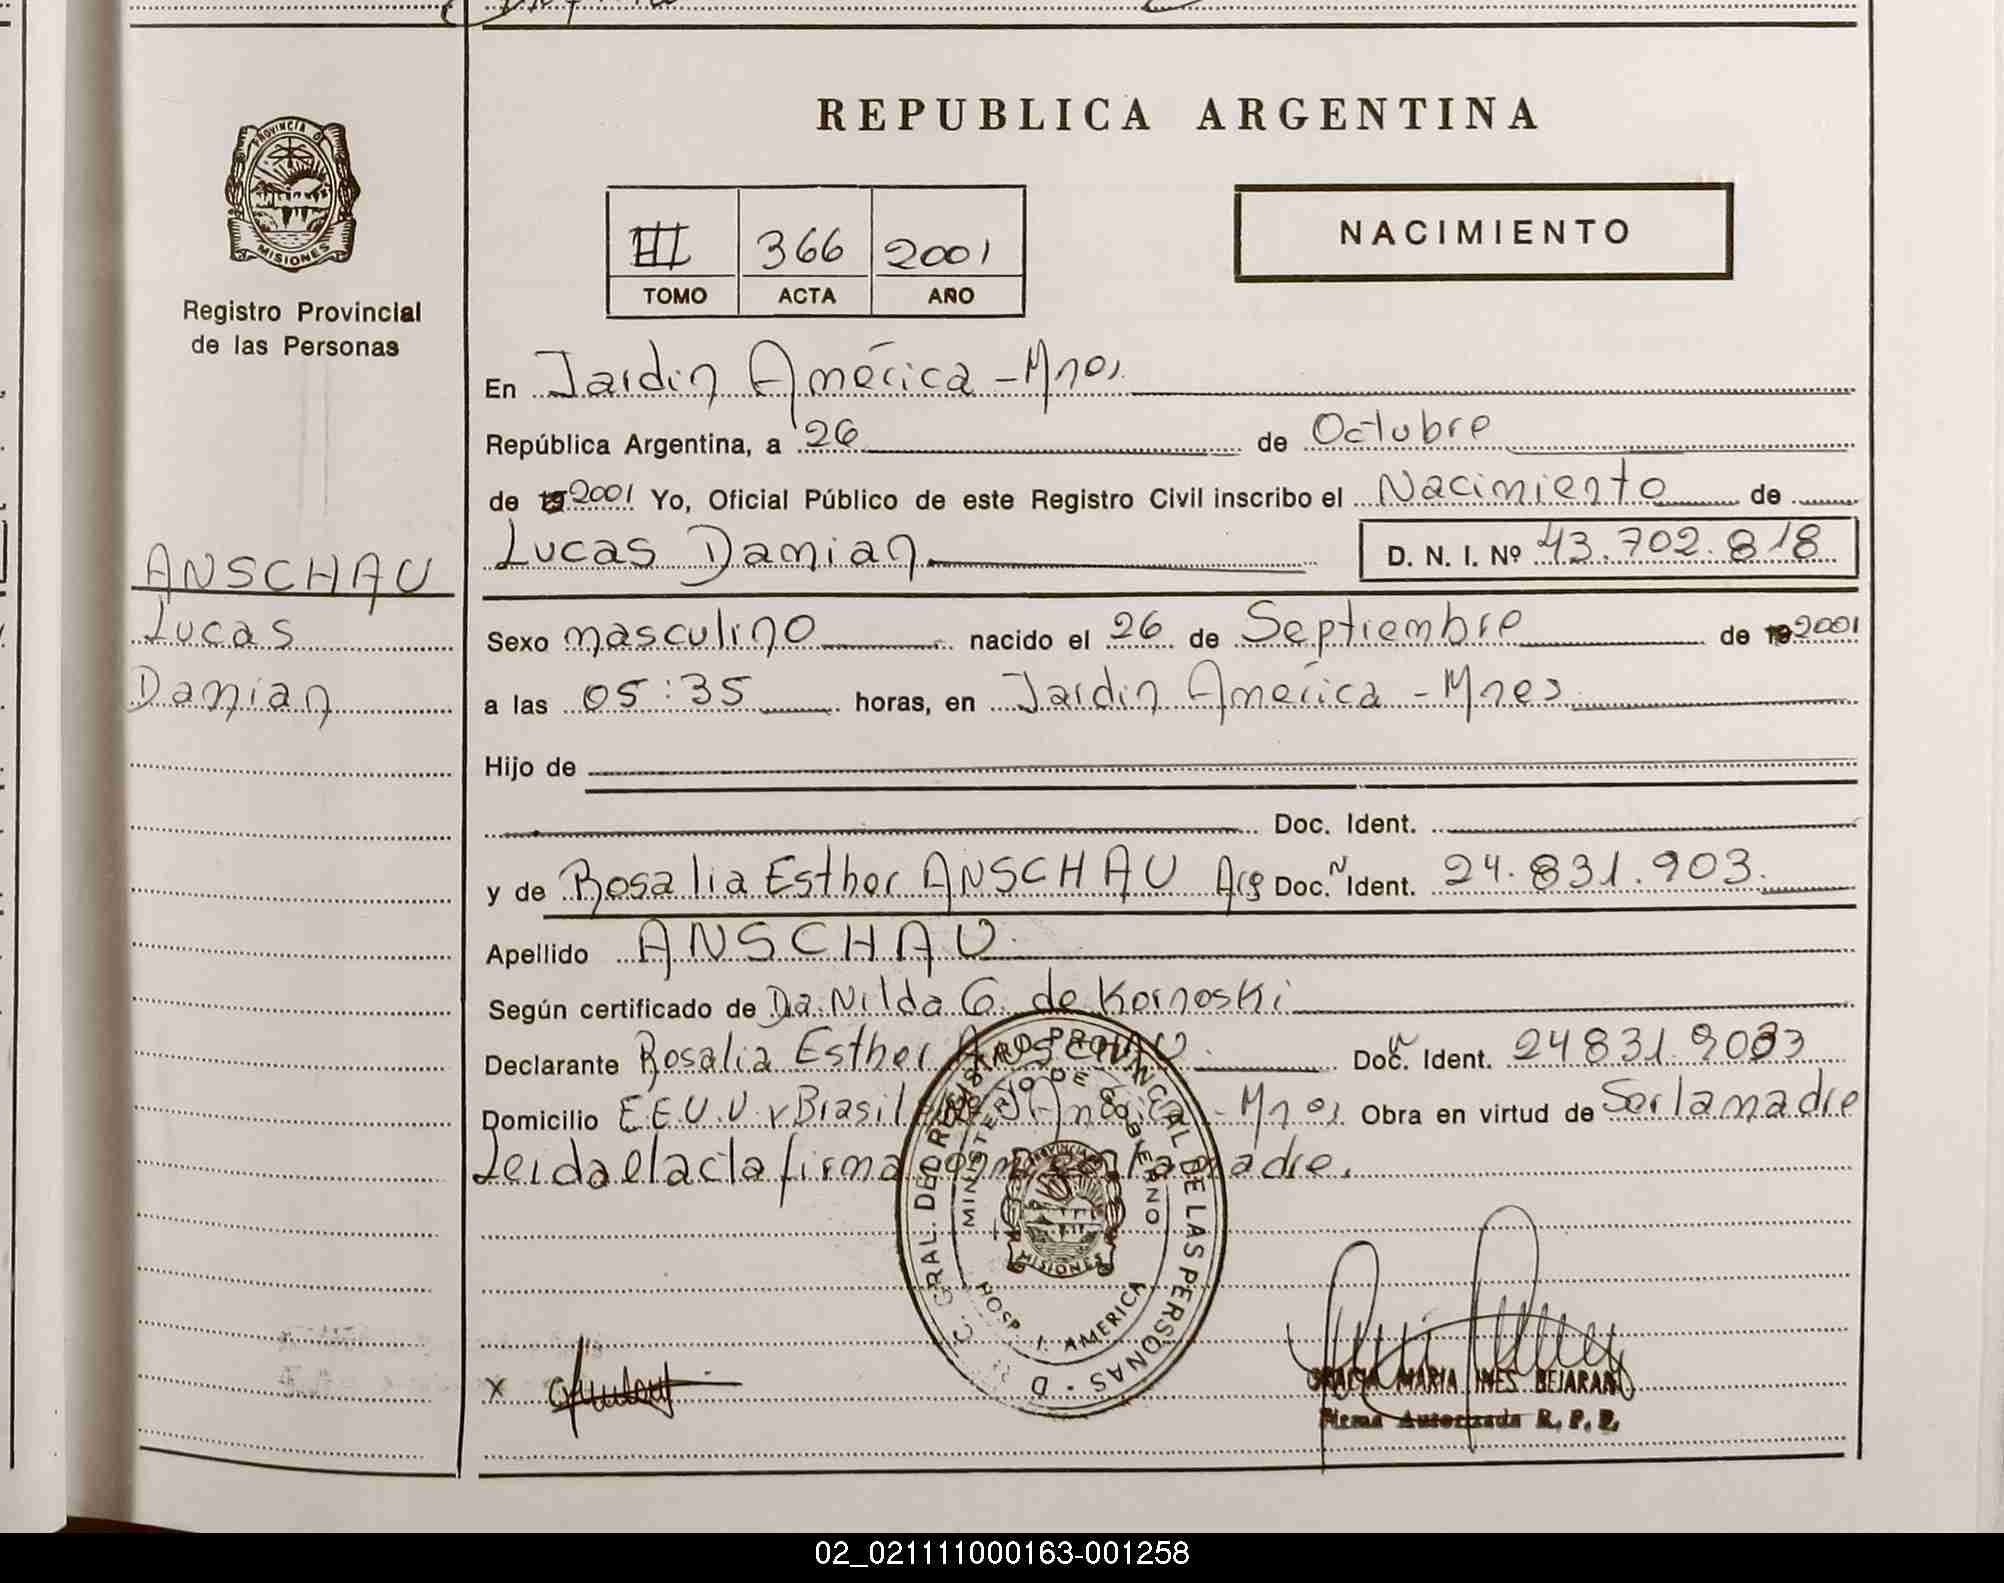 REPUBLICA ARGENTINA
PROVINCIA D
MISIONES
Registro Provincial
de las Personas
III 366 2001
TOMO ACTA AÑO
NACIMIENTO
En Jardin América - Mnes.
República Argentina, a 26 de Octubre
de 19 2001 Yo, Oficial Público de este Registro Civil inscribo el Nacimiento de
Lucas Damian D. N. I. Nº 43.702.818
ANSCHAU
Lucas
Damian
Sexo masculino nacido el 26 de Septiembre de 19 2001
a las 05:35 horas, en Jardin América - Mnes
Hijo de
Doc. Ident.
y de Rosalia Esther ANSCHAU Arg Doc. N Ident. 24.831.903.
Apellido ANSCHAU.
Según certificado de Da. Nilda G. de Kornoski
Declarante Rosalia Esther ANSCHAU. Doc. N Ident. 24831.903
Domicilio EE.U.U. y Brasil J. América - Mnes Obra en virtud de Ser la madre
Leida el acta firma la madre.
D. GRAL. DEL REGISTRO PROVINCIAL DE LAS PERSONAS
MINISTERIO DE GOBIERNO
PROVINCIA
MISIONES
HOSP. J. AMERICA
X
GRACIA MARIA INES BEJARANO
Firma Autorizada R. P. P.
02_021111000163-001258